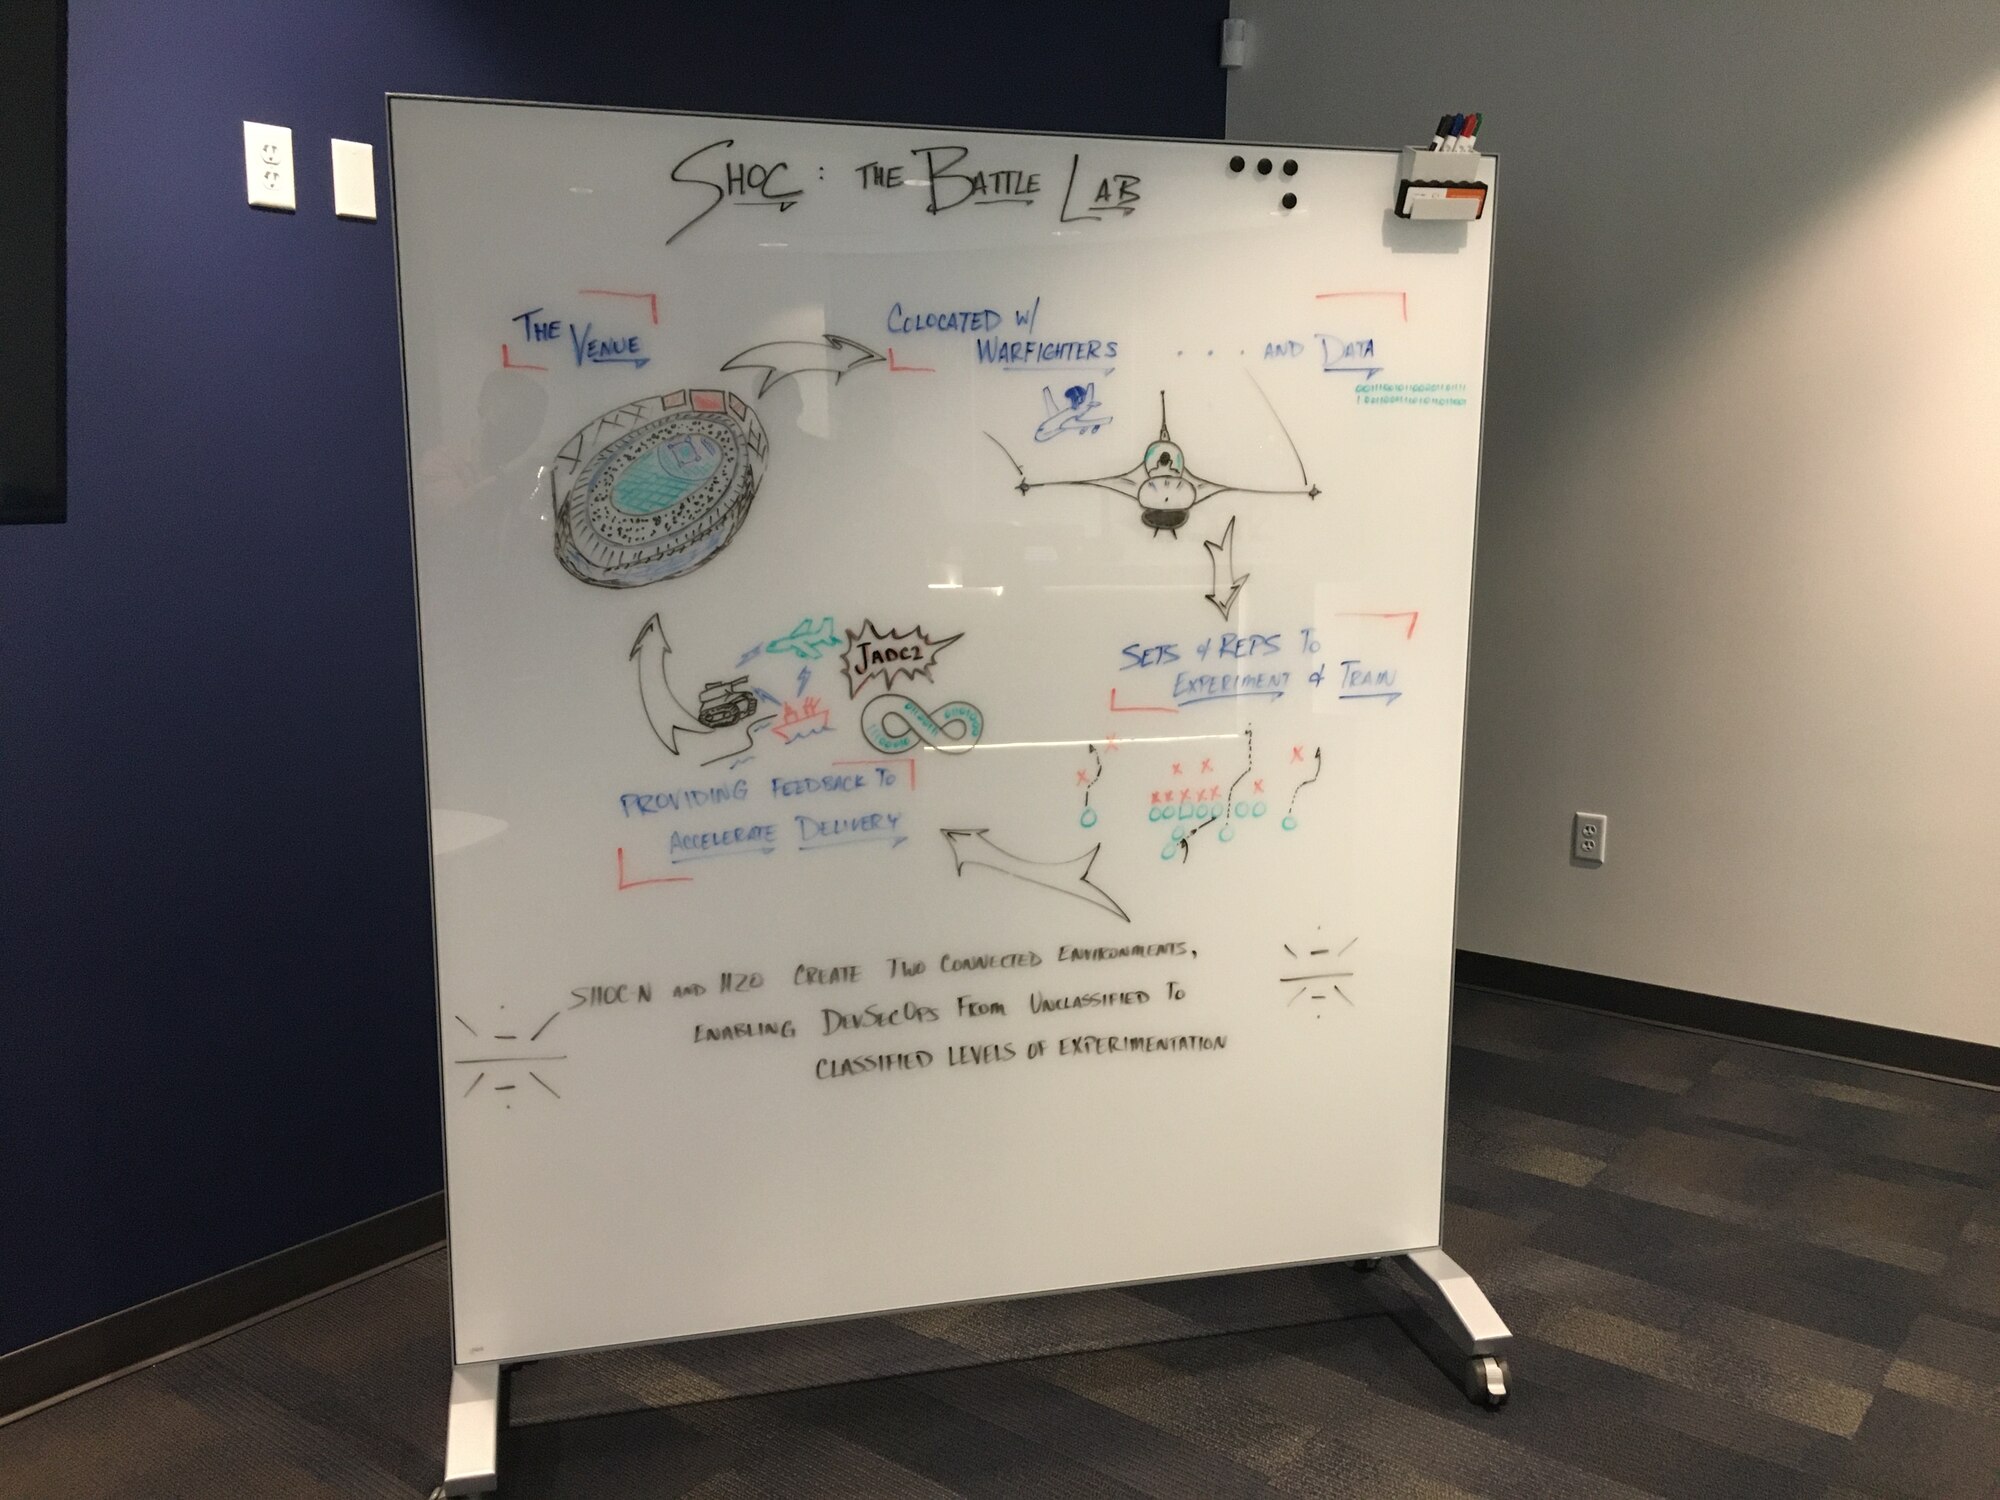 SHOC: THE BATTLE LAB
THE VENUE
COLOCATED W/
WARFIGHTERS
... AND DATA
JADC2
SETS & REPS TO
EXPERIMENT & TRAIN
PROVIDING FEEDBACK TO
ACCELERATE DELIVERY
SHOC-N AND H20 CREATE TWO CONNECTED ENVIRONMENTS,
ENABLING DEVSECOPS FROM UNCLASSIFIED TO
CLASSIFIED LEVELS OF EXPERIMENTATION